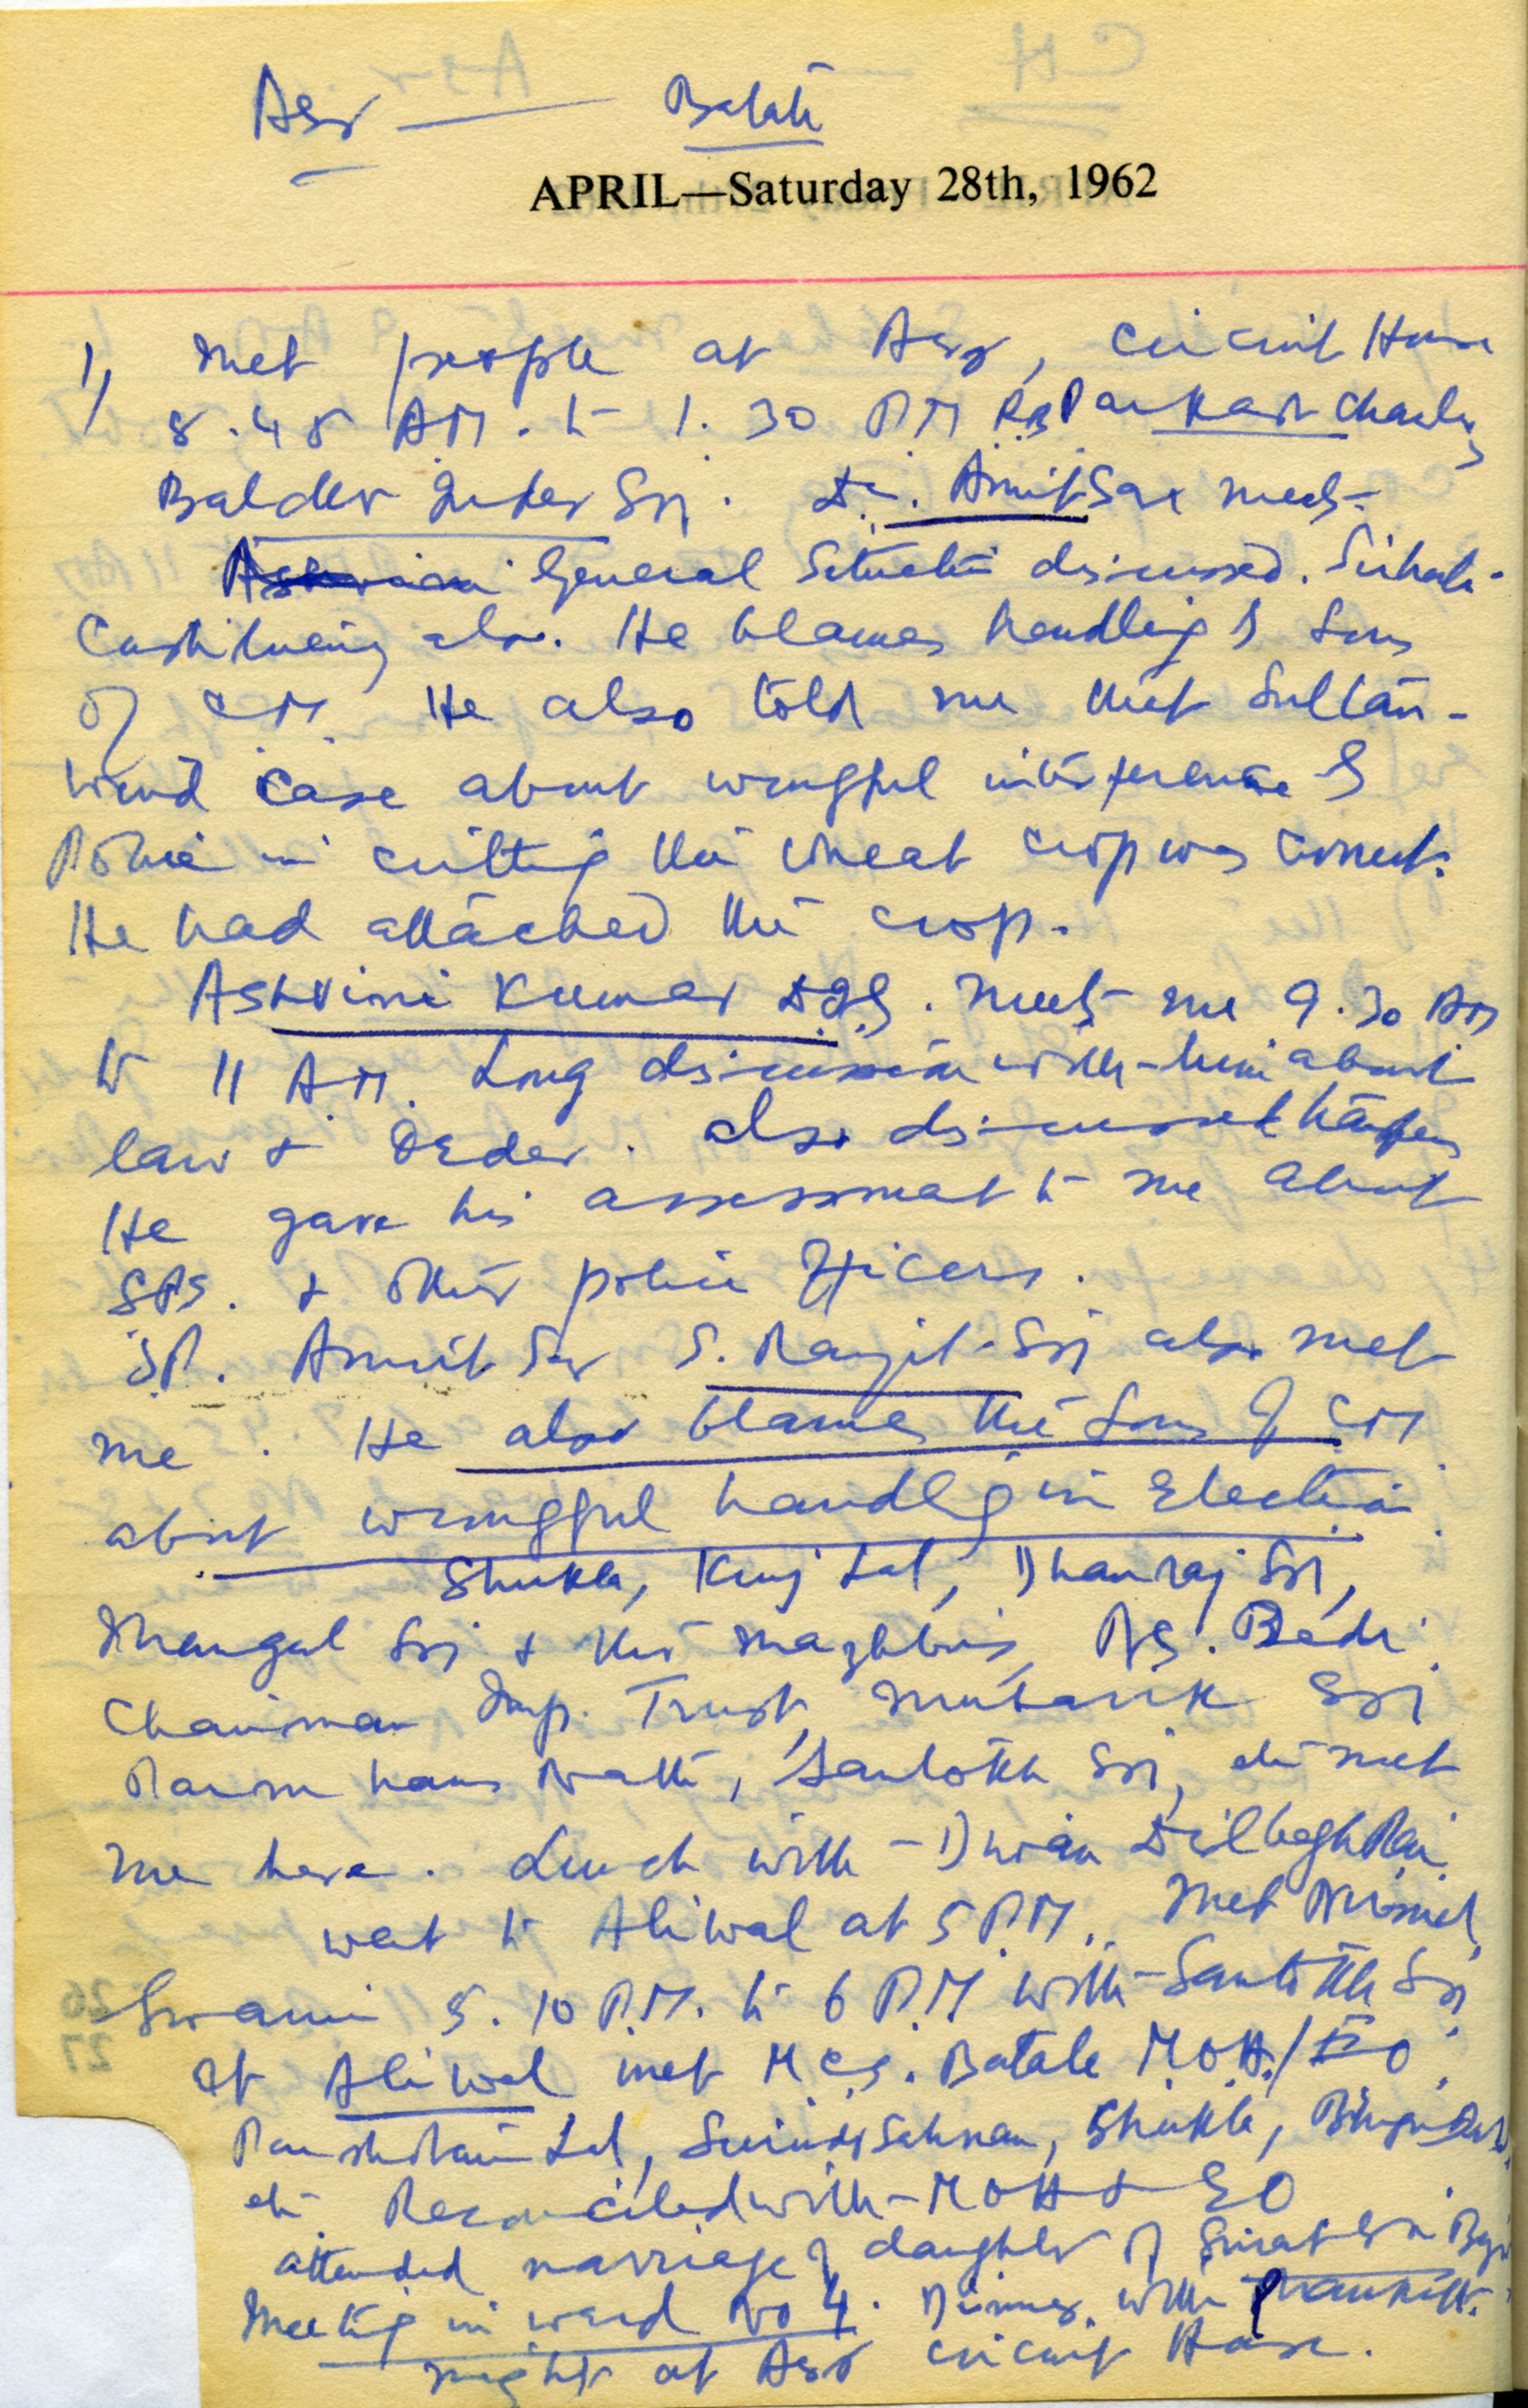 Asr — Batala
APRIL—Saturday 28th, 1962
1, Met people at Asr, Circuit House
8.45 A.M. to 1.30 PM R.B Parkash Chander
Baldev Inder Sg. D.C. Amritsar meets
General Situation discussed. Sirhali
Constituency also. He blames handling of Sons
of C.M. He also told me that Sultan-
wind Case about wrongful interference of
Police in cutting the wheat crop was correct.
He had attached the crop.
Ashvini Kumar D.I.G. meets me 9.30 AM
to 11 A.M. Long discussion with him about
law & Order. also discussed
He gave his assessment to me about
SPS. & other police Officers.
S.P. Amritsar S. Ranjit Sg also met
me. He also blames the Sons of CM
about wrongful handling in Election
Shukla, Kunj Lal, Dhanraj Sg,
Mangal Sg & the Mazhbis, B.S. Bedi
Chairman Imp. Trust, Mubarik Sg
Param hans Nath, Santokh Sg, etc met
me here. Lunch with Diwan Dilbagh Rai
went to Aliwal at 5 P.M. Met Nirmal
Swami 5.10 P.M. to 6 P.M with Santokh Sg
At Aliwal met M.C.S. Batala M.O.H./E.O.
Parshotam Lal, Surinder, Shukla,
etc Reconciled with MOH & EO
attended marriage of daughter of
Meeting in ward No 4. Dinner with
night at Asr Circuit House.